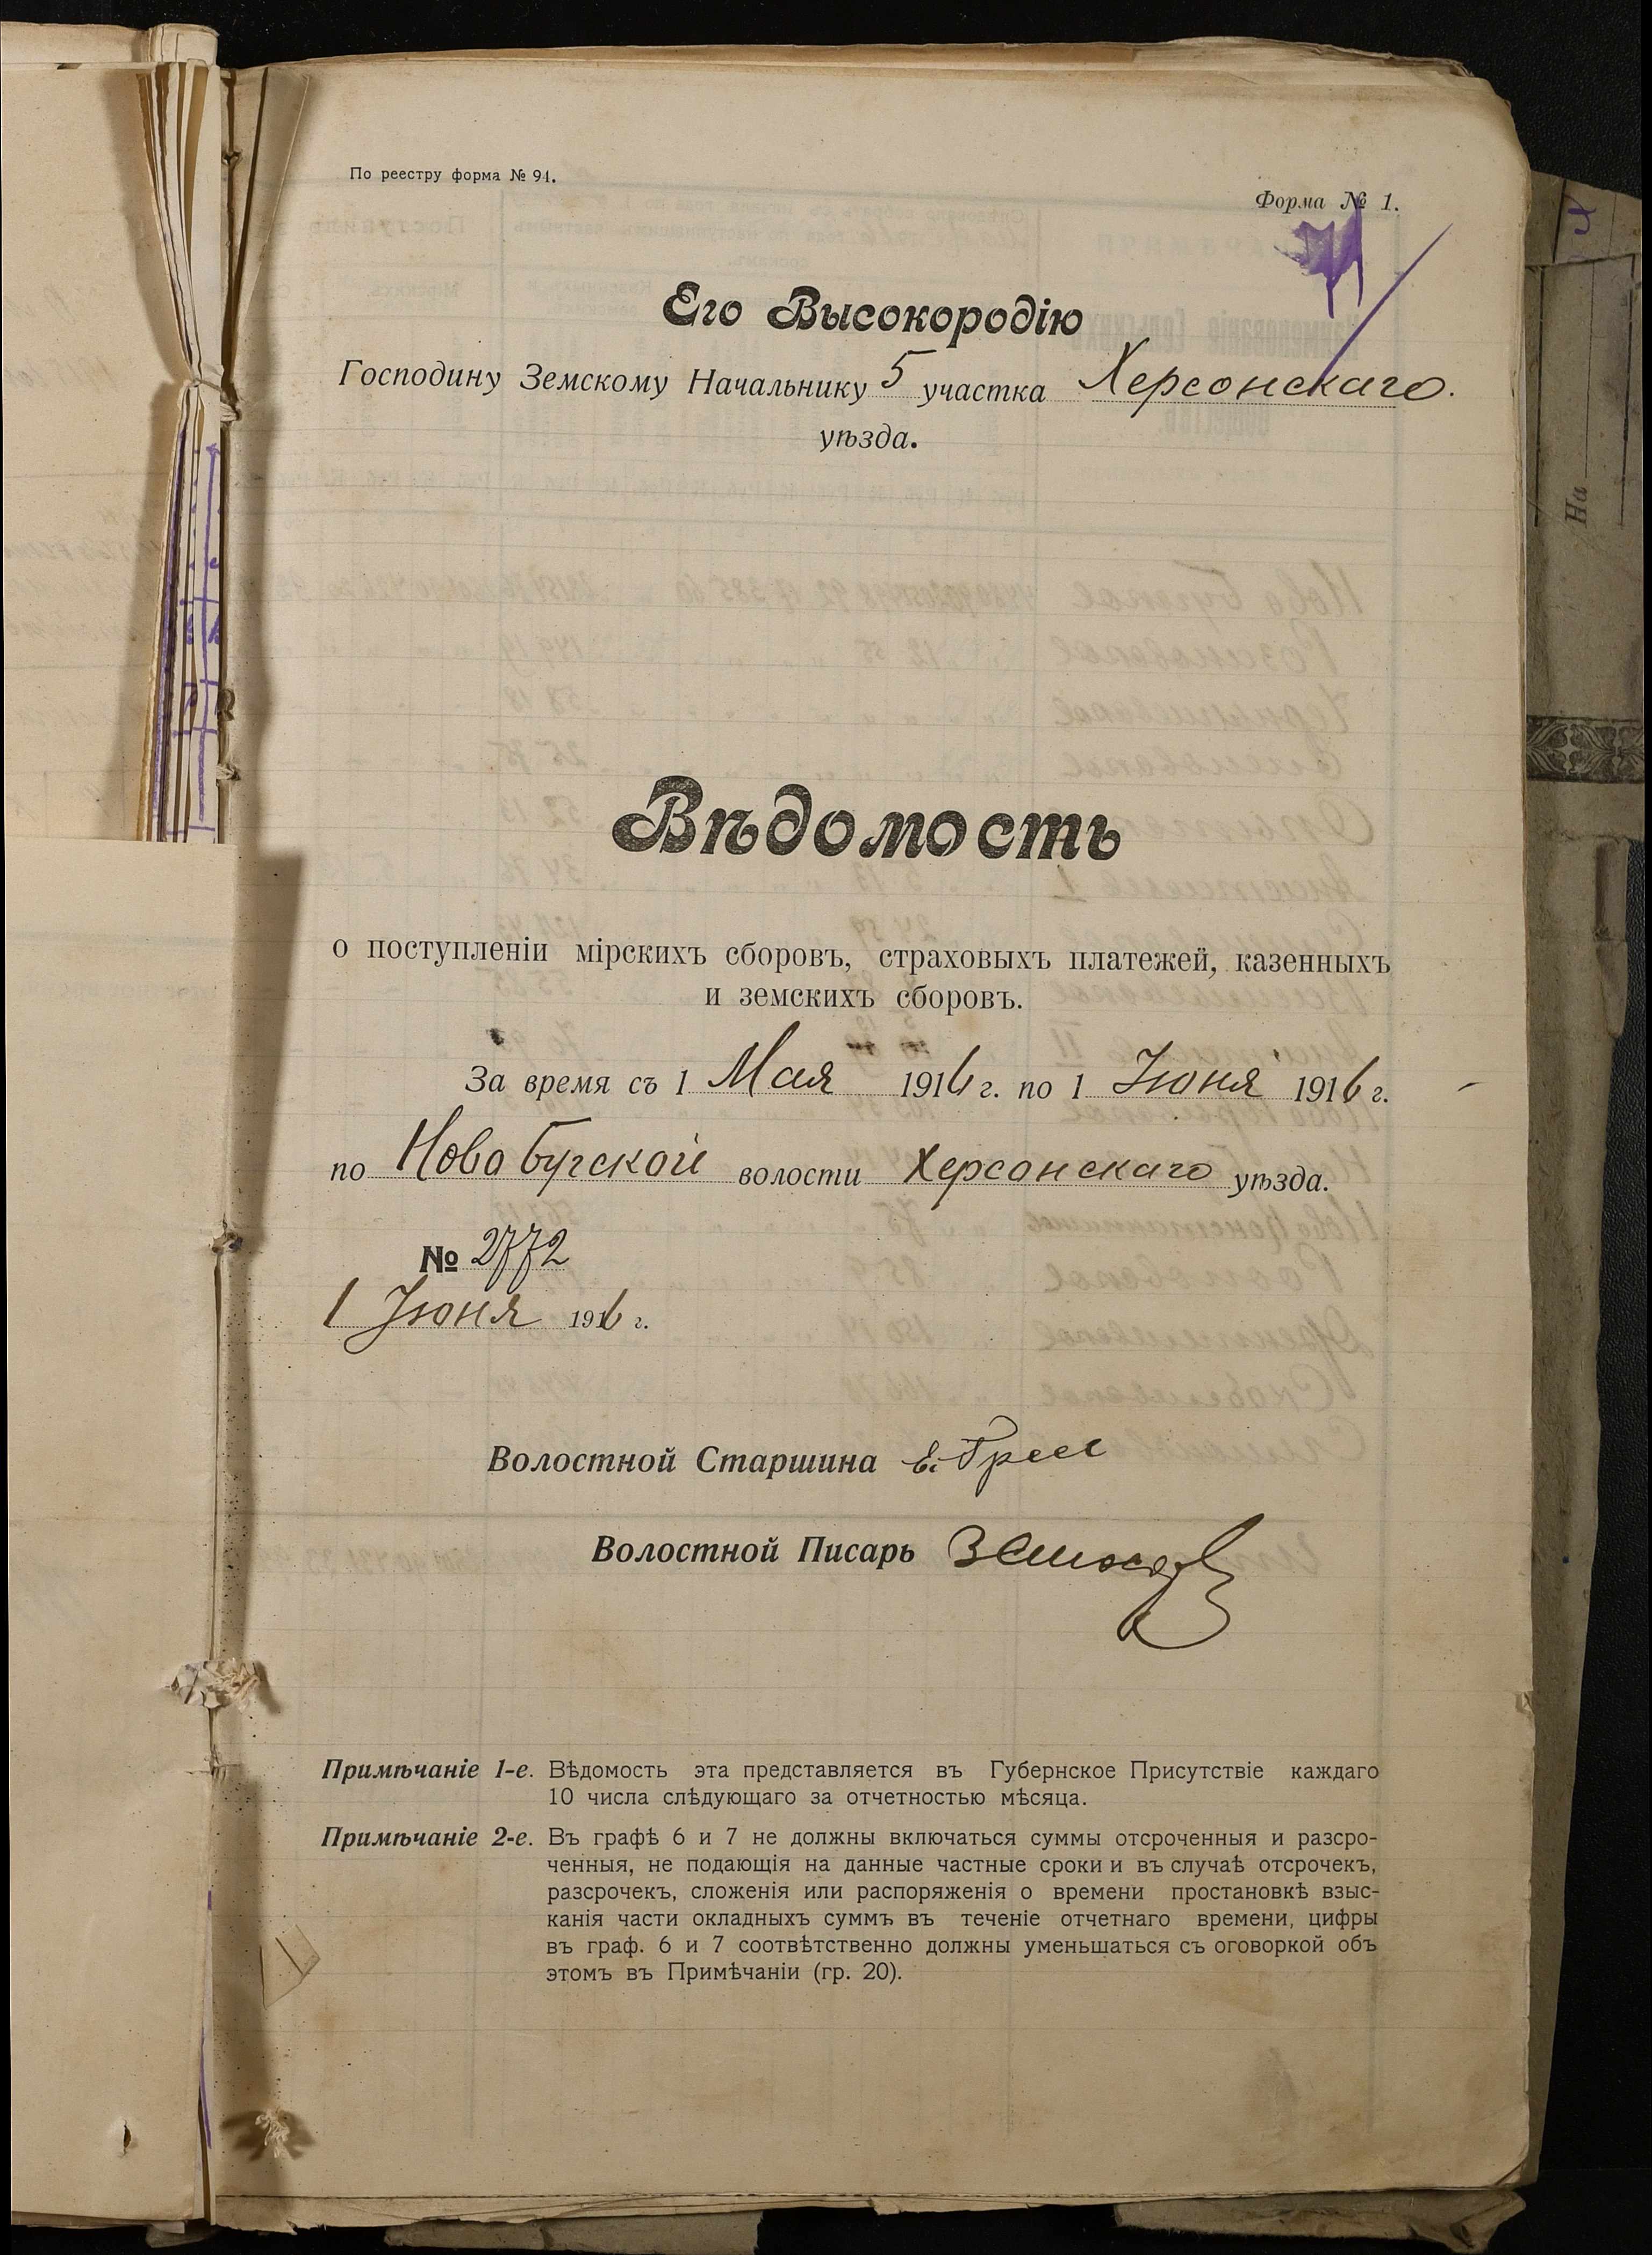 По реестру форма № 94.
Форма № 1.
Его Высокородію
Господину Земскому Начальнику 5 участка Херсонскаго.
уѣзда.
Вѣдомость
о поступленіи мірскихъ сборовъ, страховыхъ платежей, казенныхъ
и земскихъ сборовъ.
За время съ 1 Мая 1916 г. по 1 Іюня 1916 г.
по Ново Бугской волости Херсонскаго уѣзда.
№ 2772
1 Іюня 1916 г.
Волостной Старшина Е.
Волостной Писарь
Примѣчаніе 1-е. Вѣдомость эта представляется въ Губернское Присутствіе каждаго
10 числа слѣдующаго за отчетностью мѣсяца.
Примѣчаніе 2-е. Въ графѣ 6 и 7 не должны включаться суммы отсроченныя и разсро-
ченныя, не подающія на данные частные сроки и въ случаѣ отсрочекъ,
разсрочекъ, сложенія или распоряженія о времени простановкѣ взыс-
канія части окладныхъ суммъ въ теченіе отчетнаго времени, цифры
въ граф. 6 и 7 соотвѣтственно должны уменьшаться съ оговоркой объ
этомъ въ Примѣчаніи (гр. 20).
На